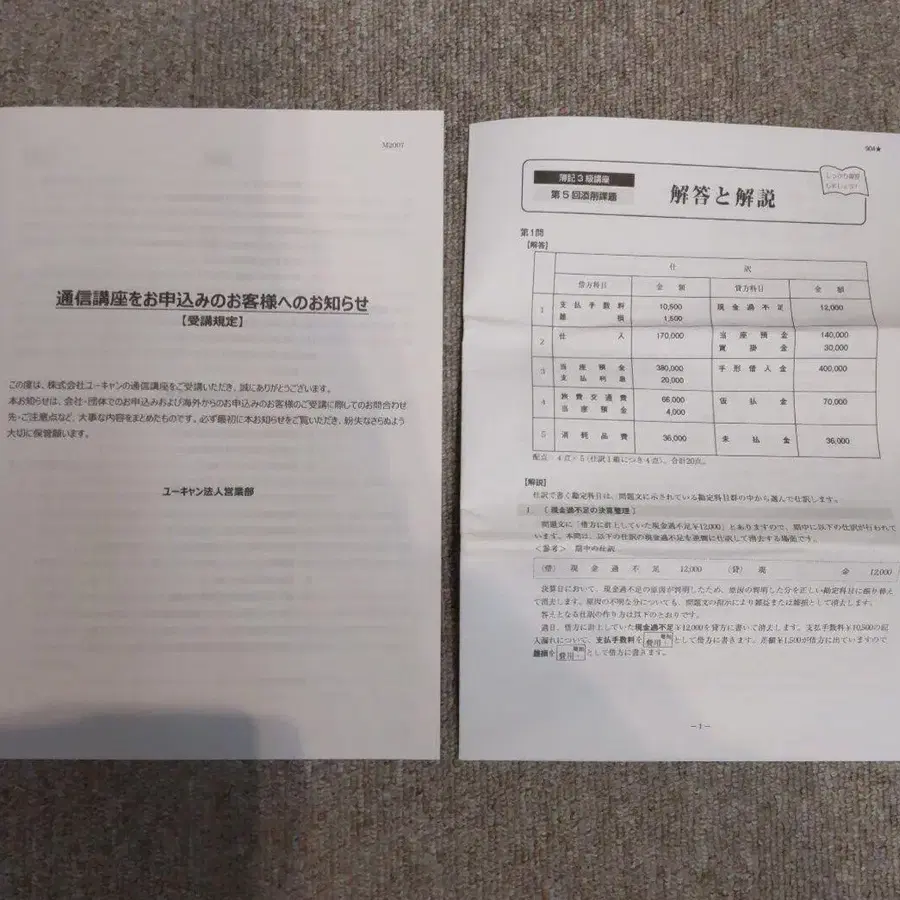 M2007
通信講座をお申込みのお客様へのお知らせ
【受講規定】
この度は、株式会社ユーキャンの通信講座をご受講いただき、誠にありがとうございます。
本お知らせは、会社・団体でのお申込みおよび海外からのお申込みのお客様のご受講に際してのお問合わせ
先・ご注意点など、大事な内容をまとめたものです。必ず最初に本お知らせをご覧いただき、紛失なさらぬよう
大切に保管願います。
ユーキャン法人営業部
904★
簿記3級講座
第5回添削課題
解答と解説
しっかり復習
しましょう!
第1問
【解答】
仕 訳
借方科目 金額 貸方科目 金額
1 支払手数料 10,500 現金過不足 12,000
雑損 1,500
2 仕入 170,000 当座預金 140,000
買掛金 30,000
3 当座預金 380,000 手形借入金 400,000
支払利息 20,000
4 旅費交通費 66,000 仮払金 70,000
当座預金 4,000
5 消耗品費 36,000 未払金 36,000
配点:4点×5(仕訳1組につき4点)、合計20点。
【解説】
仕訳で書く勘定科目は、問題文に示されている勘定科目群の中から選んで仕訳します。
1 (現金過不足の決算整理)
問題文に「借方に計上していた現金過不足¥12,000」とありますので、期中に以下の仕訳が行われて
います。本問は、以下の仕訳の現金過不足を逆側に仕訳して消去する場面です。
<参考> 期中の仕訳
(借) 現金過不足 12,000 (貸) 現 金 12,000
決算日において、現金過不足の原因が判明したため、原因の判明した分を正しい勘定科目に振り替え
て消去します。原因の不明な分についても、問題文の指示により雑益または雑損として消去します。
答えとなる仕訳の作り方は以下のとおりです。
過日、借方に計上していた現金過不足¥12,000を貸方に書いて消去します。支払手数料¥10,500の記
入漏れについて、支払手数料を費用として借方に書きます。差額¥1,500が借方に出ていますので
雑損を費用として借方に書きます。
―1―